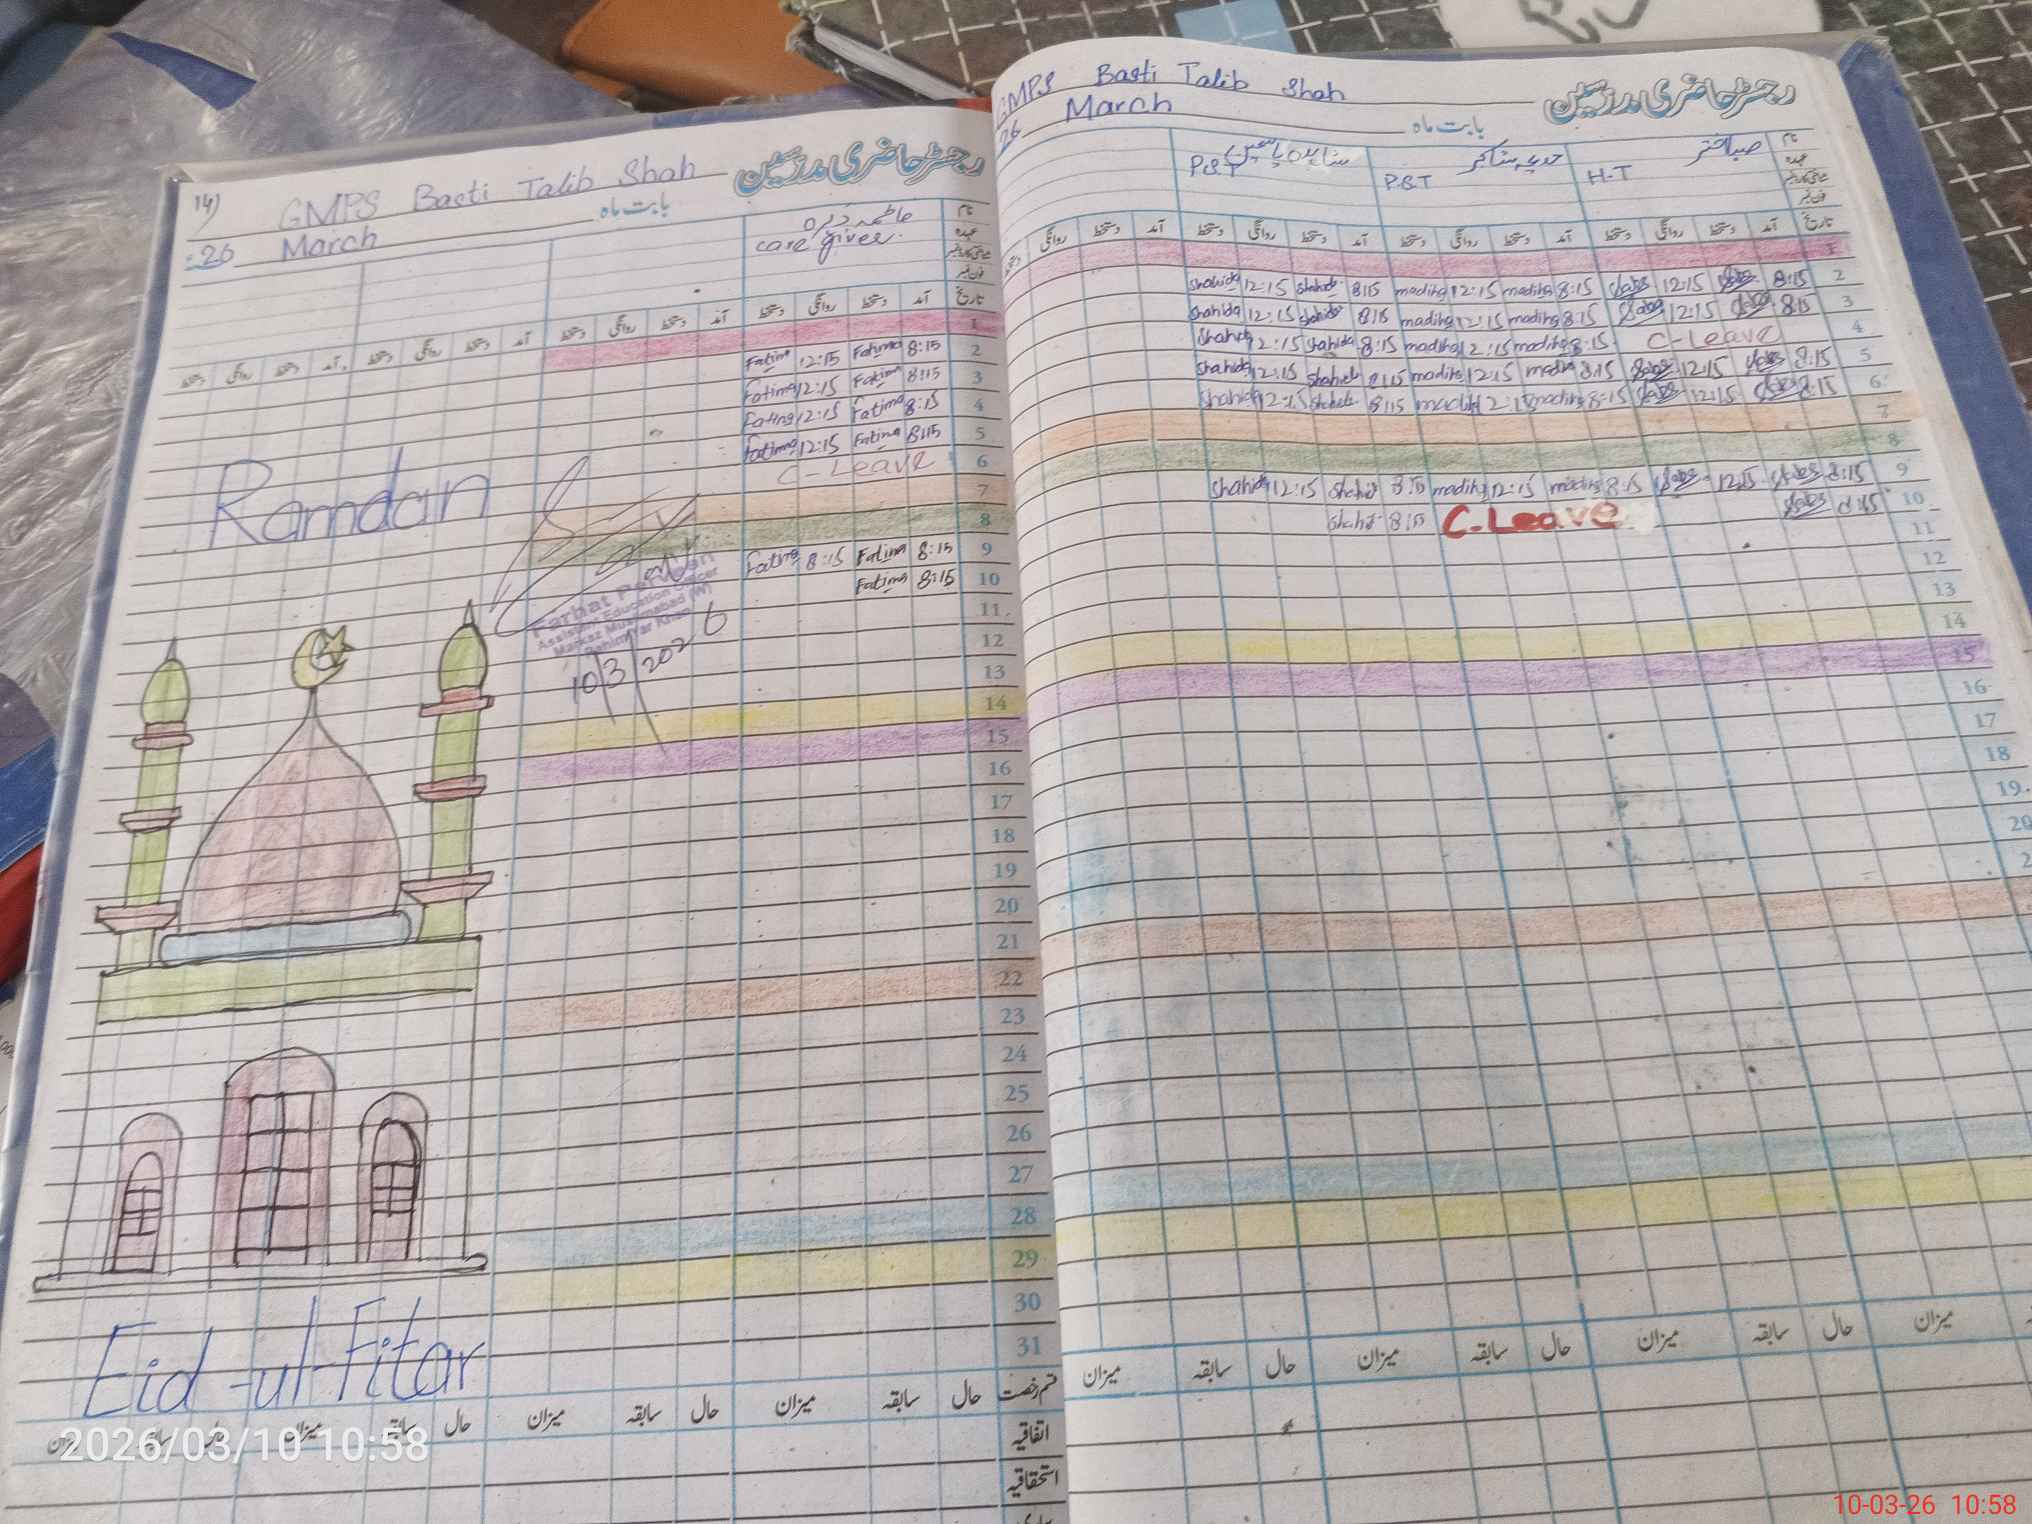 14)
GMPS Basti Talib Shah
رجسٹر حاضری مدرسین
26 March
بابت ماہ
نام
عہدہ
care giver.
تاریخ
آمد دستخط روانگی دستخط آمد دستخط روانگی دستخط آمد دستخط روانگی دستخط
1
2 8:15 Fatima 12:15 Fatima
3 8:15 Fatima 12:15 Fatima
4 8:15 Fatima 12:15 Fatima
5 8:15 Fatima 12:15 Fatima
6 C-Leave
7
8
9 8:15 Fatima 8:15 Fatima
10 8:15 Fatima
11
12
13
14
15
16
17
18
19
20
21
22
23
24
25
26
27
28
29
30
31
Ramdan
Farhat Parveen
Assistant Education Officer
Markaz (W)
Rahim Yar Khan
10/3/2026
Eid-ul-Fitar
قسم رخصت حال سابقہ میزان حال سابقہ میزان حال سابقہ میزان
اتفاقیہ
استحقاقیہ
GMPS Basti Talib Shah
رجسٹر حاضری مدرسین
26 March
بابت ماہ
نام
عہدہ
صبا اختر
H-T
P.S.T
P.S.T
تاریخ
آمد دستخط روانگی دستخط آمد دستخط روانگی دستخط آمد دستخط روانگی دستخط آمد دستخط روانگی
1
2 8:15 Saba 12:15 Saba 8:15 madiha 12:15 madiha 8:15 Shahida 12:15 Shahida
3 8:15 Saba 12:15 Saba 8:15 madiha 12:15 madiha 8:15 Shahida 12:15 Shahida
4 C-Leave 8:15 madiha 12:15 madiha 8:15 Shahida 12:15 Shahida
5 8:15 Saba 12:15 Saba 8:15 madiha 12:15 madiha 8:15 Shahida 12:15 Shahida
6 8:15 Saba 12:15 Saba 8:15 madiha 12:15 madiha 8:15 Shahida 12:15 Shahida
7
8
9 8:15 Saba 12:15 Saba 8:15 madiha 12:15 madiha 8:15 Shahida 12:15 Shahida
10 8:15 Saba C.Leave 8:15 Shahida
11
12
13
14
15
16
17
18
19
20
میزان حال سابقہ میزان حال سابقہ میزان حال سابقہ میزان
2026/03/10 10:58
10-03-26 10:58